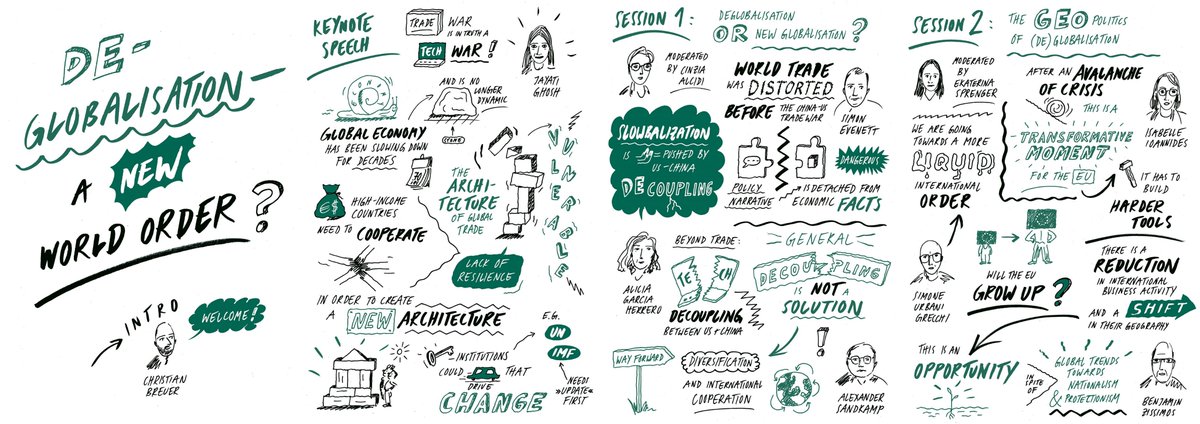 DE-
GLOBALISATION-
A
NEW
WORLD ORDER?
INTRO
WELCOME!
CHRISTIAN
BREUER
KEYNOTE
SPEECH
TRADE WAR
IS IN TRUTH A
TECH WAR!
JAYATI
GHOSH
AND IS NO
LONGER
DYNAMIC
STONE
GLOBAL ECONOMY
HAS BEEN SLOWING DOWN
FOR DECADES
30
€$
HIGH-INCOME
COUNTRIES
NEED TO COOPERATE
THE
ARCHI-
TECTURE
OF GLOBAL
TRADE
VULNERABLE
LACK OF
RESILIENCE
IN ORDER TO CREATE
A NEW ARCHITECTURE
INSTITUTIONS
COULD DRIVE THAT
CHANGE
E.G.
UN
IMF
NEED
»UPDATE«
FIRST
SESSION 1:
DEGLOBALISATION
OR NEW GLOBALISATION?
MODERATED
BY CINZIA
ALCIDI
WORLD TRADE
WAS DISTORTED
BEFORE THE CHINA-US
TRADE WAR
SIMON
EVENETT
SLOWBALIZATION
IS PUSHED BY
US-CHINA
DECOUPLING
POLICY
NARRATIVE
IS DETACHED FROM
ECONOMIC FACTS
DANGEROUS
ALICIA
GARCIA
HERRERO
BEYOND TRADE:
TECH
DECOUPLING
BETWEEN US + CHINA
GENERAL
DECOUPLING
IS NOT A
SOLUTION
!
WAY FORWARD
DIVERSIFICATION
AND INTERNATIONAL
COOPERATION
ALEXANDER
SANDKAMP
SESSION 2:
THE GEOPOLITICS
OF (DE)GLOBALISATION
MODERATED
BY
EKATERINA
SPRENGER
AFTER AN AVALANCHE
OF CRISIS
THIS IS A
TRANSFORMATIVE
MOMENT
FOR THE EU
ISABELLE
IOANNIDES
WE ARE GOING
TOWARDS A MORE
LIQUID
INTERNATIONAL
ORDER
IT HAS TO
BUILD
HARDER
TOOLS
SIMONE
URBANI
GRECCHI
WILL THE EU
GROW UP?
THERE IS A
REDUCTION
IN INTERNATIONAL
BUSINESS ACTIVITY
AND A SHIFT
IN THEIR GEOGRAPHY
THIS IS AN
OPPORTUNITY
IN
SPITE
OF
GLOBAL TRENDS
TOWARDS
NATIONALISM
& PROTECTIONISM
BENJAMIN
ZISSIMOS